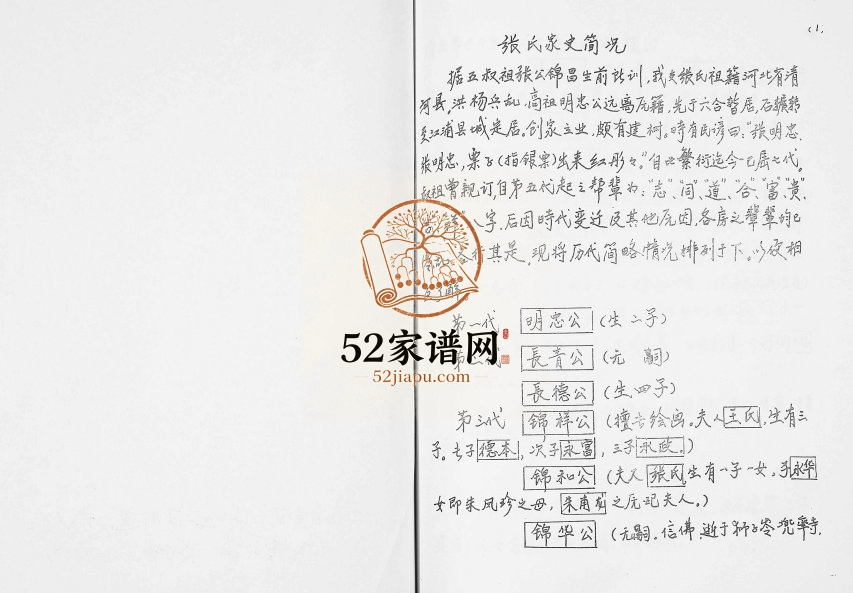 (1.
张氏家史简况
据五叔祖张公锦昌生前训，我支张氏祖籍河北省清
河县。洪杨兵乱，高祖明忠公远离原籍，先于六合暂居，后辗转
至江浦县城定居。创家立业，颇有建树。时有民谚曰：“张明忠、
张明忠，票子（指银票）出来红彤々。”自此繁衍迄今已届七代。
叔祖曾亲订，自第五代起之帮辈为：“志”、“同”、“道”、“合”、“富”、“贵”、
八字，后因时代变迁及其他原因，各房之辈均已
各行其是。现将历代简略情况排列于下。以便相
第一代 明忠公（生二子）
長青公（无嗣）
長德公（生四子）
第三代 锦祥公（擅长绘画。夫人王氏，生有三
子。长子德本，次子永富，三子永政。）
锦和公（夫人张氏生有一子一女。子永华
女即朱凤珍之母，朱甫之原配夫人。）
锦华公（无嗣。信佛，逝于狮子岭兜率寺，
52家谱网
52jiapu.com